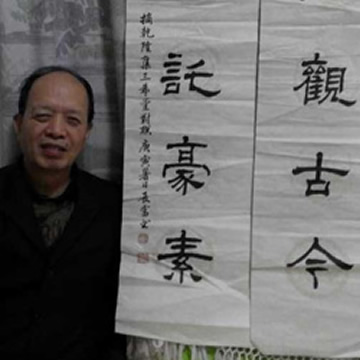 觀古今
託豪素
摘乾隆集三希堂對聯庚寅暑日長富書